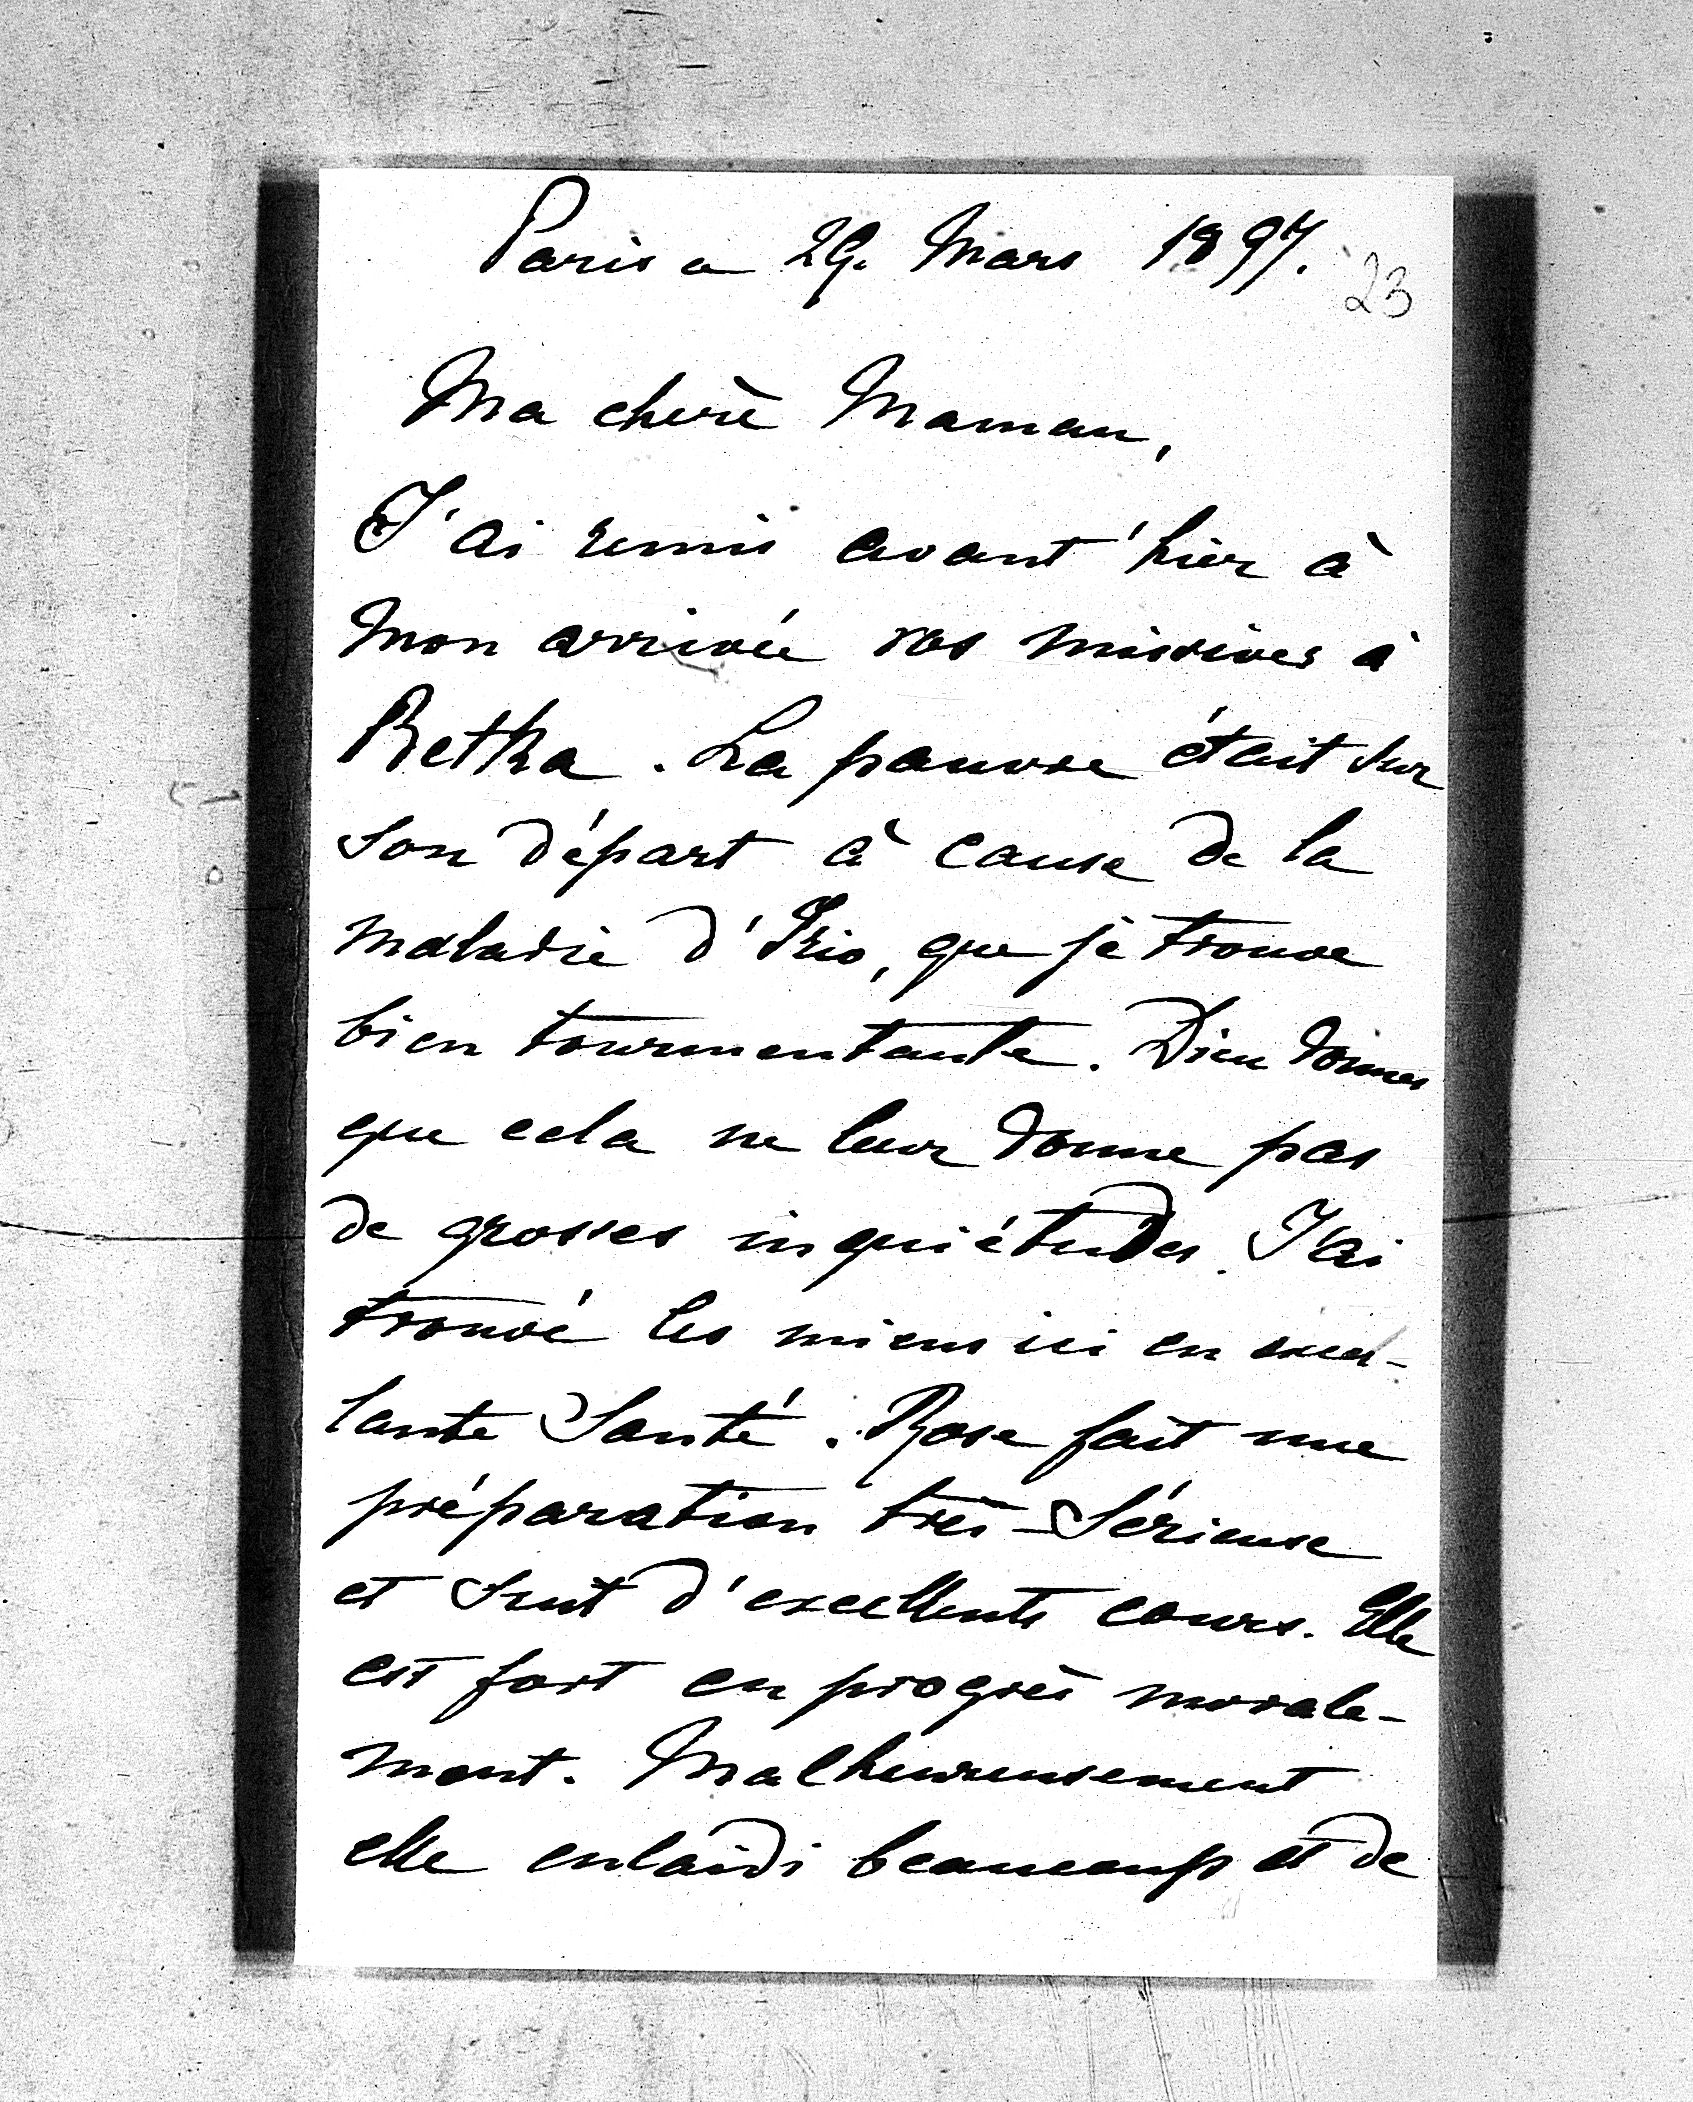 Paris a 29. Mars 1897.
23
Ma cherè Maman,
J'ai remis avant'hier à
mon arrivée vos missives à
Retka. La pauvre était sur
son départ à cause de la
maladie d'Irio, que je trouve
bien tourmentante. Dieu donnes
que cela ne leur donne pas
de grosses inquiétudes. J'ai
trouvé les miens ici en excel-
lante Santé. Rose fait une
préparation très-Sérieuse
et suit d'excellents cours. Elle
est fort en progrès morale-
ment. Malheureusement
elle enlaidi beaucoup et de